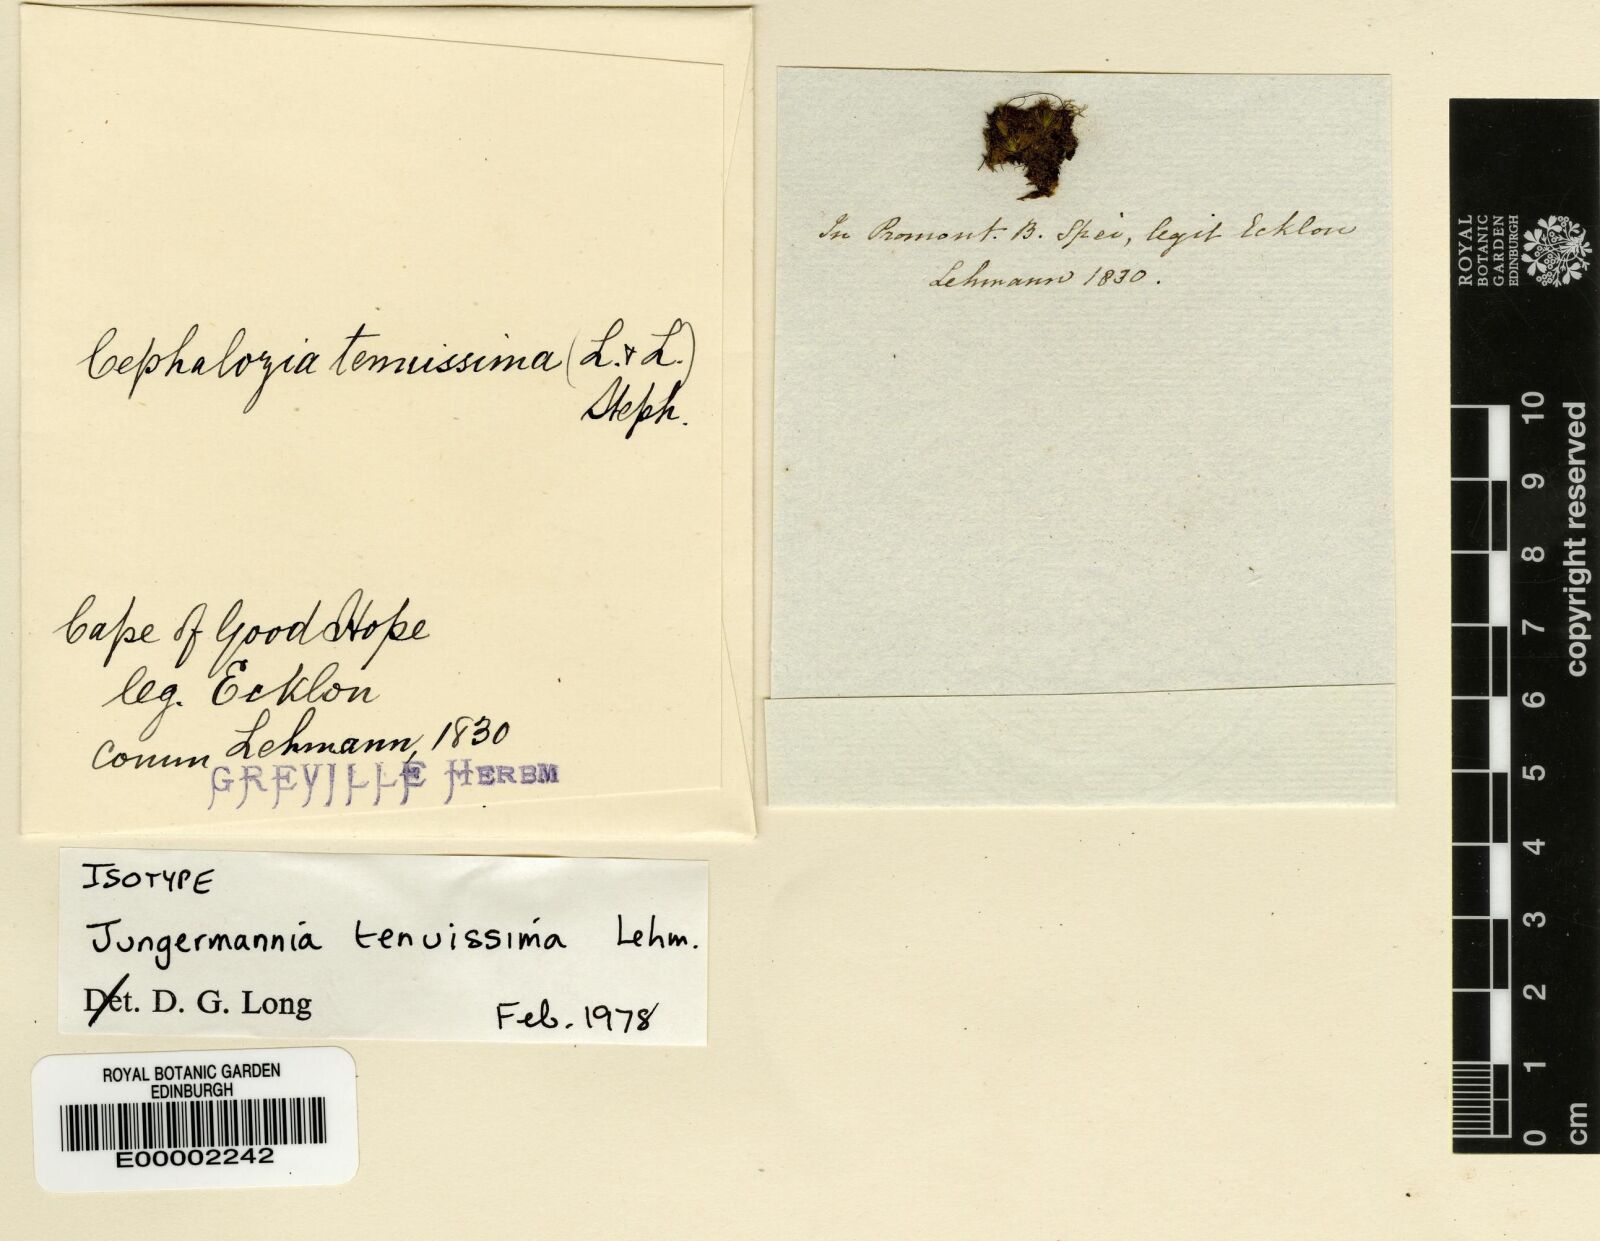 Cephalozia tenuissima (L. & L.)
Steph.
Cape of Good Hope
leg. Ecklon
comm Lehmann, 1830
GREVILLE HERBM
In Promont. B. Spei, legit Ecklon
Lehmann 1830.
ISOTYPE
Jungermannia tenuissima Lehm.
Det. D. G. Long
Feb. 1978
ROYAL BOTANIC GARDEN
EDINBURGH
E00002242
ROYAL
BOTANIC
GARDEN
EDINBURGH
10
9
8
7
6
5
4
3
2
1
0
cm
copyright reserved